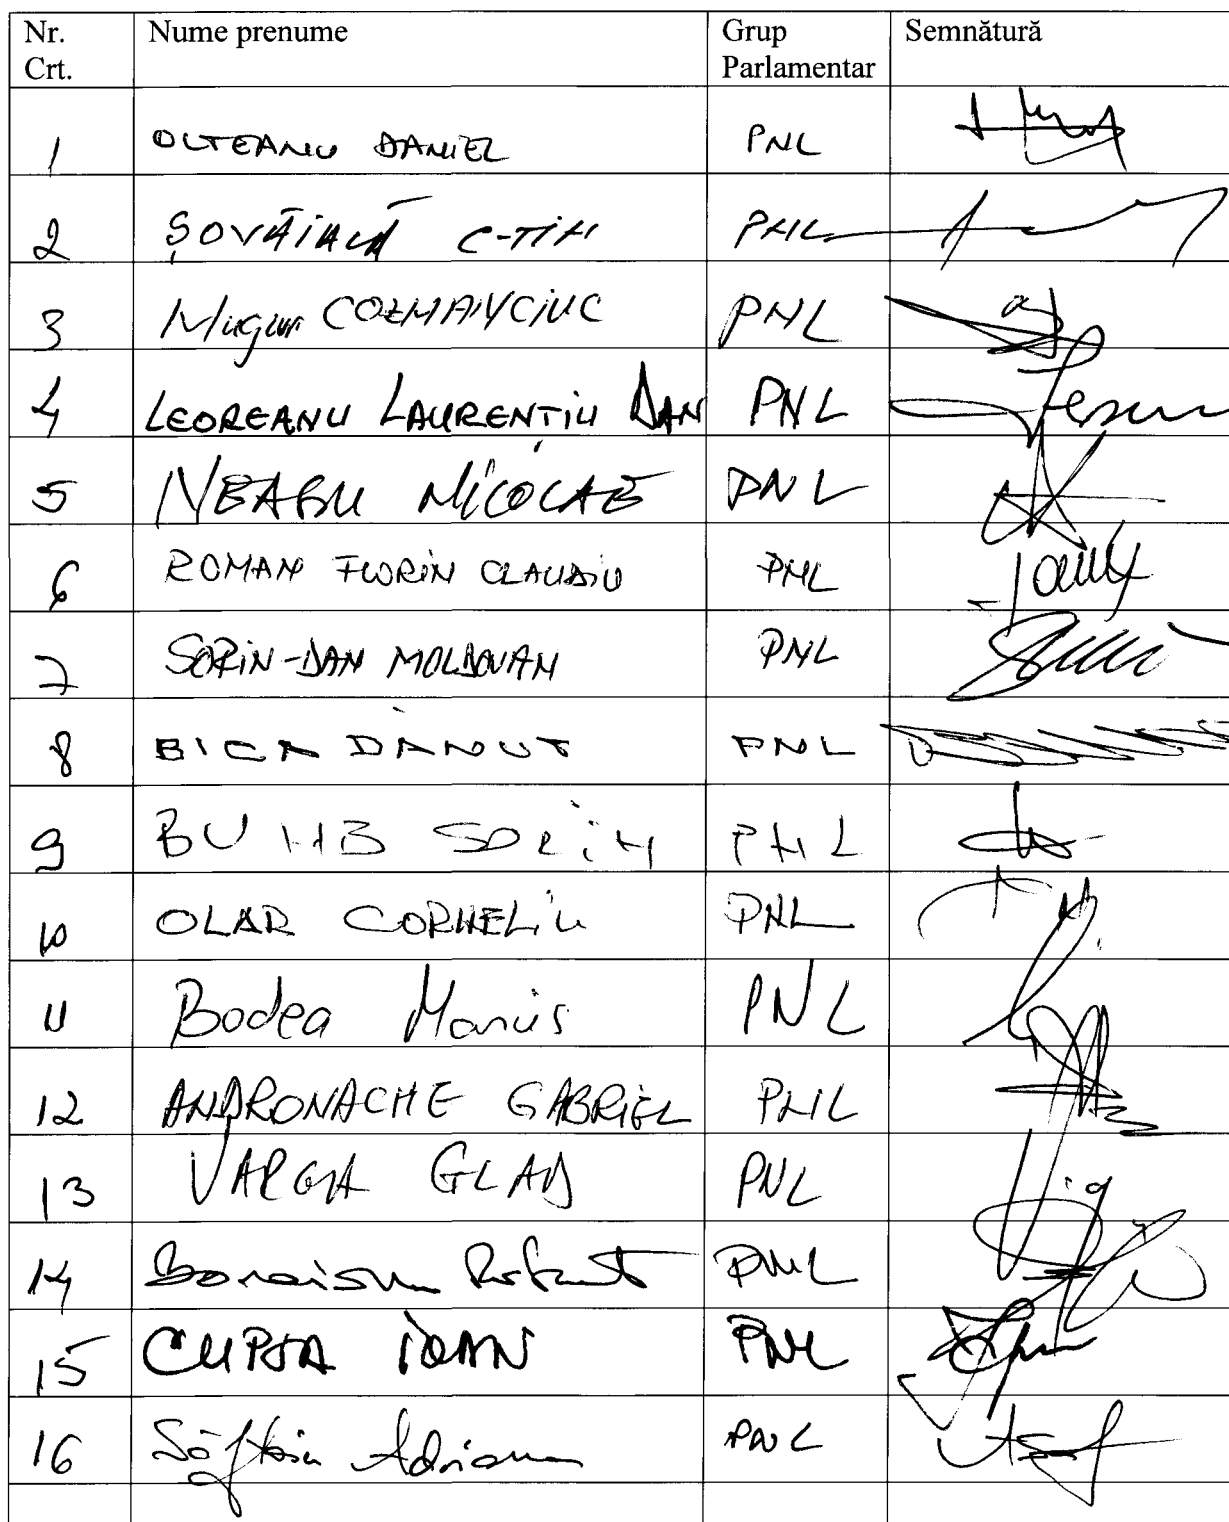 Nr. Crt. Nume prenume Grup Parlamentar Semnătură
1 OLTEANU DANIEL PNL
2 ȘOVĂIALĂ C-TIN PNL
3 Mugur COZMANCIUC PNL
4 LEOREANU LAURENȚIU DAN PNL
5 NEAGU NICOLAE PNL
6 ROMAN FLORIN CLAUDIU PNL
7 SORIN-DAN MOLDOVAN PNL
8 BICA DANUT PNL
9 BUMB SORIN PNL
10 OLAR CORNELIU PNL
11 Bodea Marius PNL
12 ANDRONACHE GABRIEL PNL
13 VARGA GLAD PNL
14 PNL
15 CUPȘA IOAN PNL
16 PNL